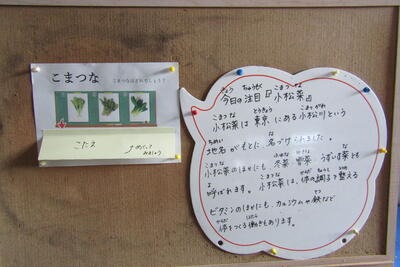 こまつな
こまつなはどれでしょう？
こたえ
めくって
みましょう
今日の注目『小松菜』
小松菜は東京にある小松川という
地名がもとに、名づけられました。
小松菜のほかにも、冬菜 雪菜 うぐいす菜とも
呼ばれます。小松菜は、体の調子を整える
ビタミンのほかにも、カルシウムや鉄など
体をつくる働きもあります。